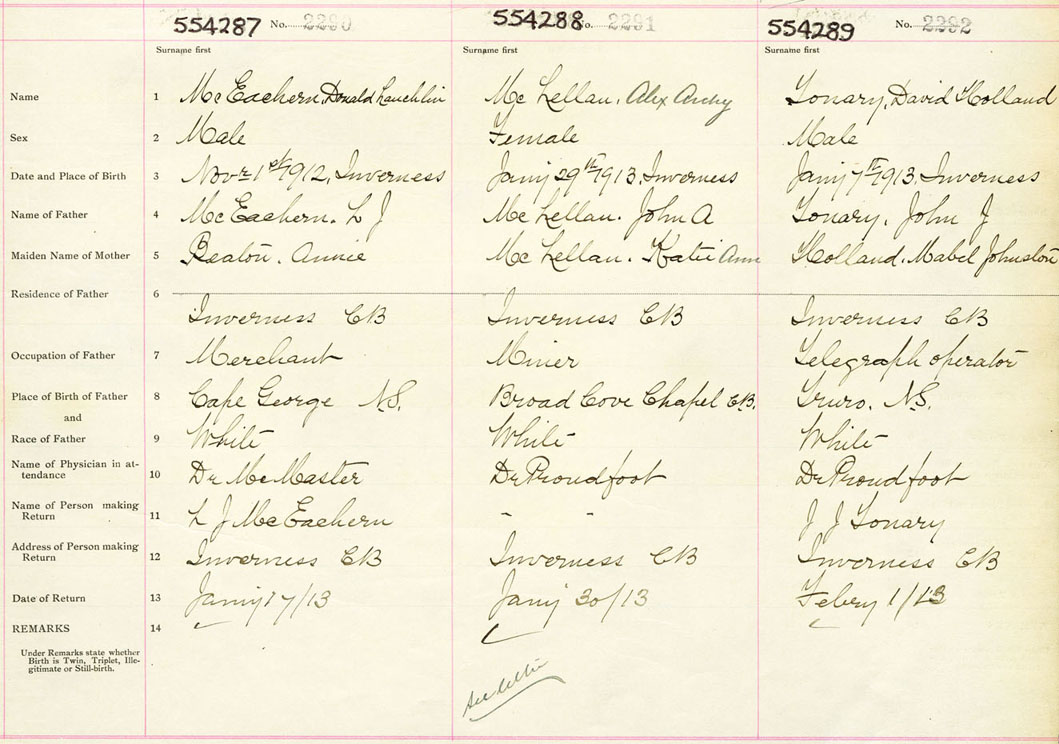 554287 No. 2290 554288 No. 2291 554289 No. 2292
Surname first Surname first Surname first
Name 1 McEachern, Donald Lauchlin Mc Lellan, Alex Archy Tonary, David Holland
Sex 2 Male Female Male
Date and Place of Birth 3 Novr 1st 1912, Inverness Jany 29th 1913, Inverness Jany 7th 1913, Inverness
Name of Father 4 McEachern. L J Mc Lellan. John A Tonary. John J
Maiden Name of Mother 5 Beaton. Annie Mc Lellan. Katie Ann Holland. Mabel Johnston
Residence of Father 6
Inverness CB Inverness CB Inverness CB
Occupation of Father 7 Merchant Miner Telegraph operator
Place of Birth of Father 8 Cape George N.S. Broad Cove Chapel C.B. Truro. N.S.
and
Race of Father 9 White White White
Name of Physician in at- 10 Dr McMaster Dr Proudfoot Dr Proudfoot
tendance
Name of Person making 11 L J McEachern " " J J Tonary
Return
Address of Person making 12 Inverness CB Inverness CB Inverness CB
Return
Date of Return 13 Jany 17/13 Jany 30/13 Febry 1/13
REMARKS 14
Under Remarks state whether
Birth is Twin, Triplet, Ille-
gitimate or Still-birth.
see